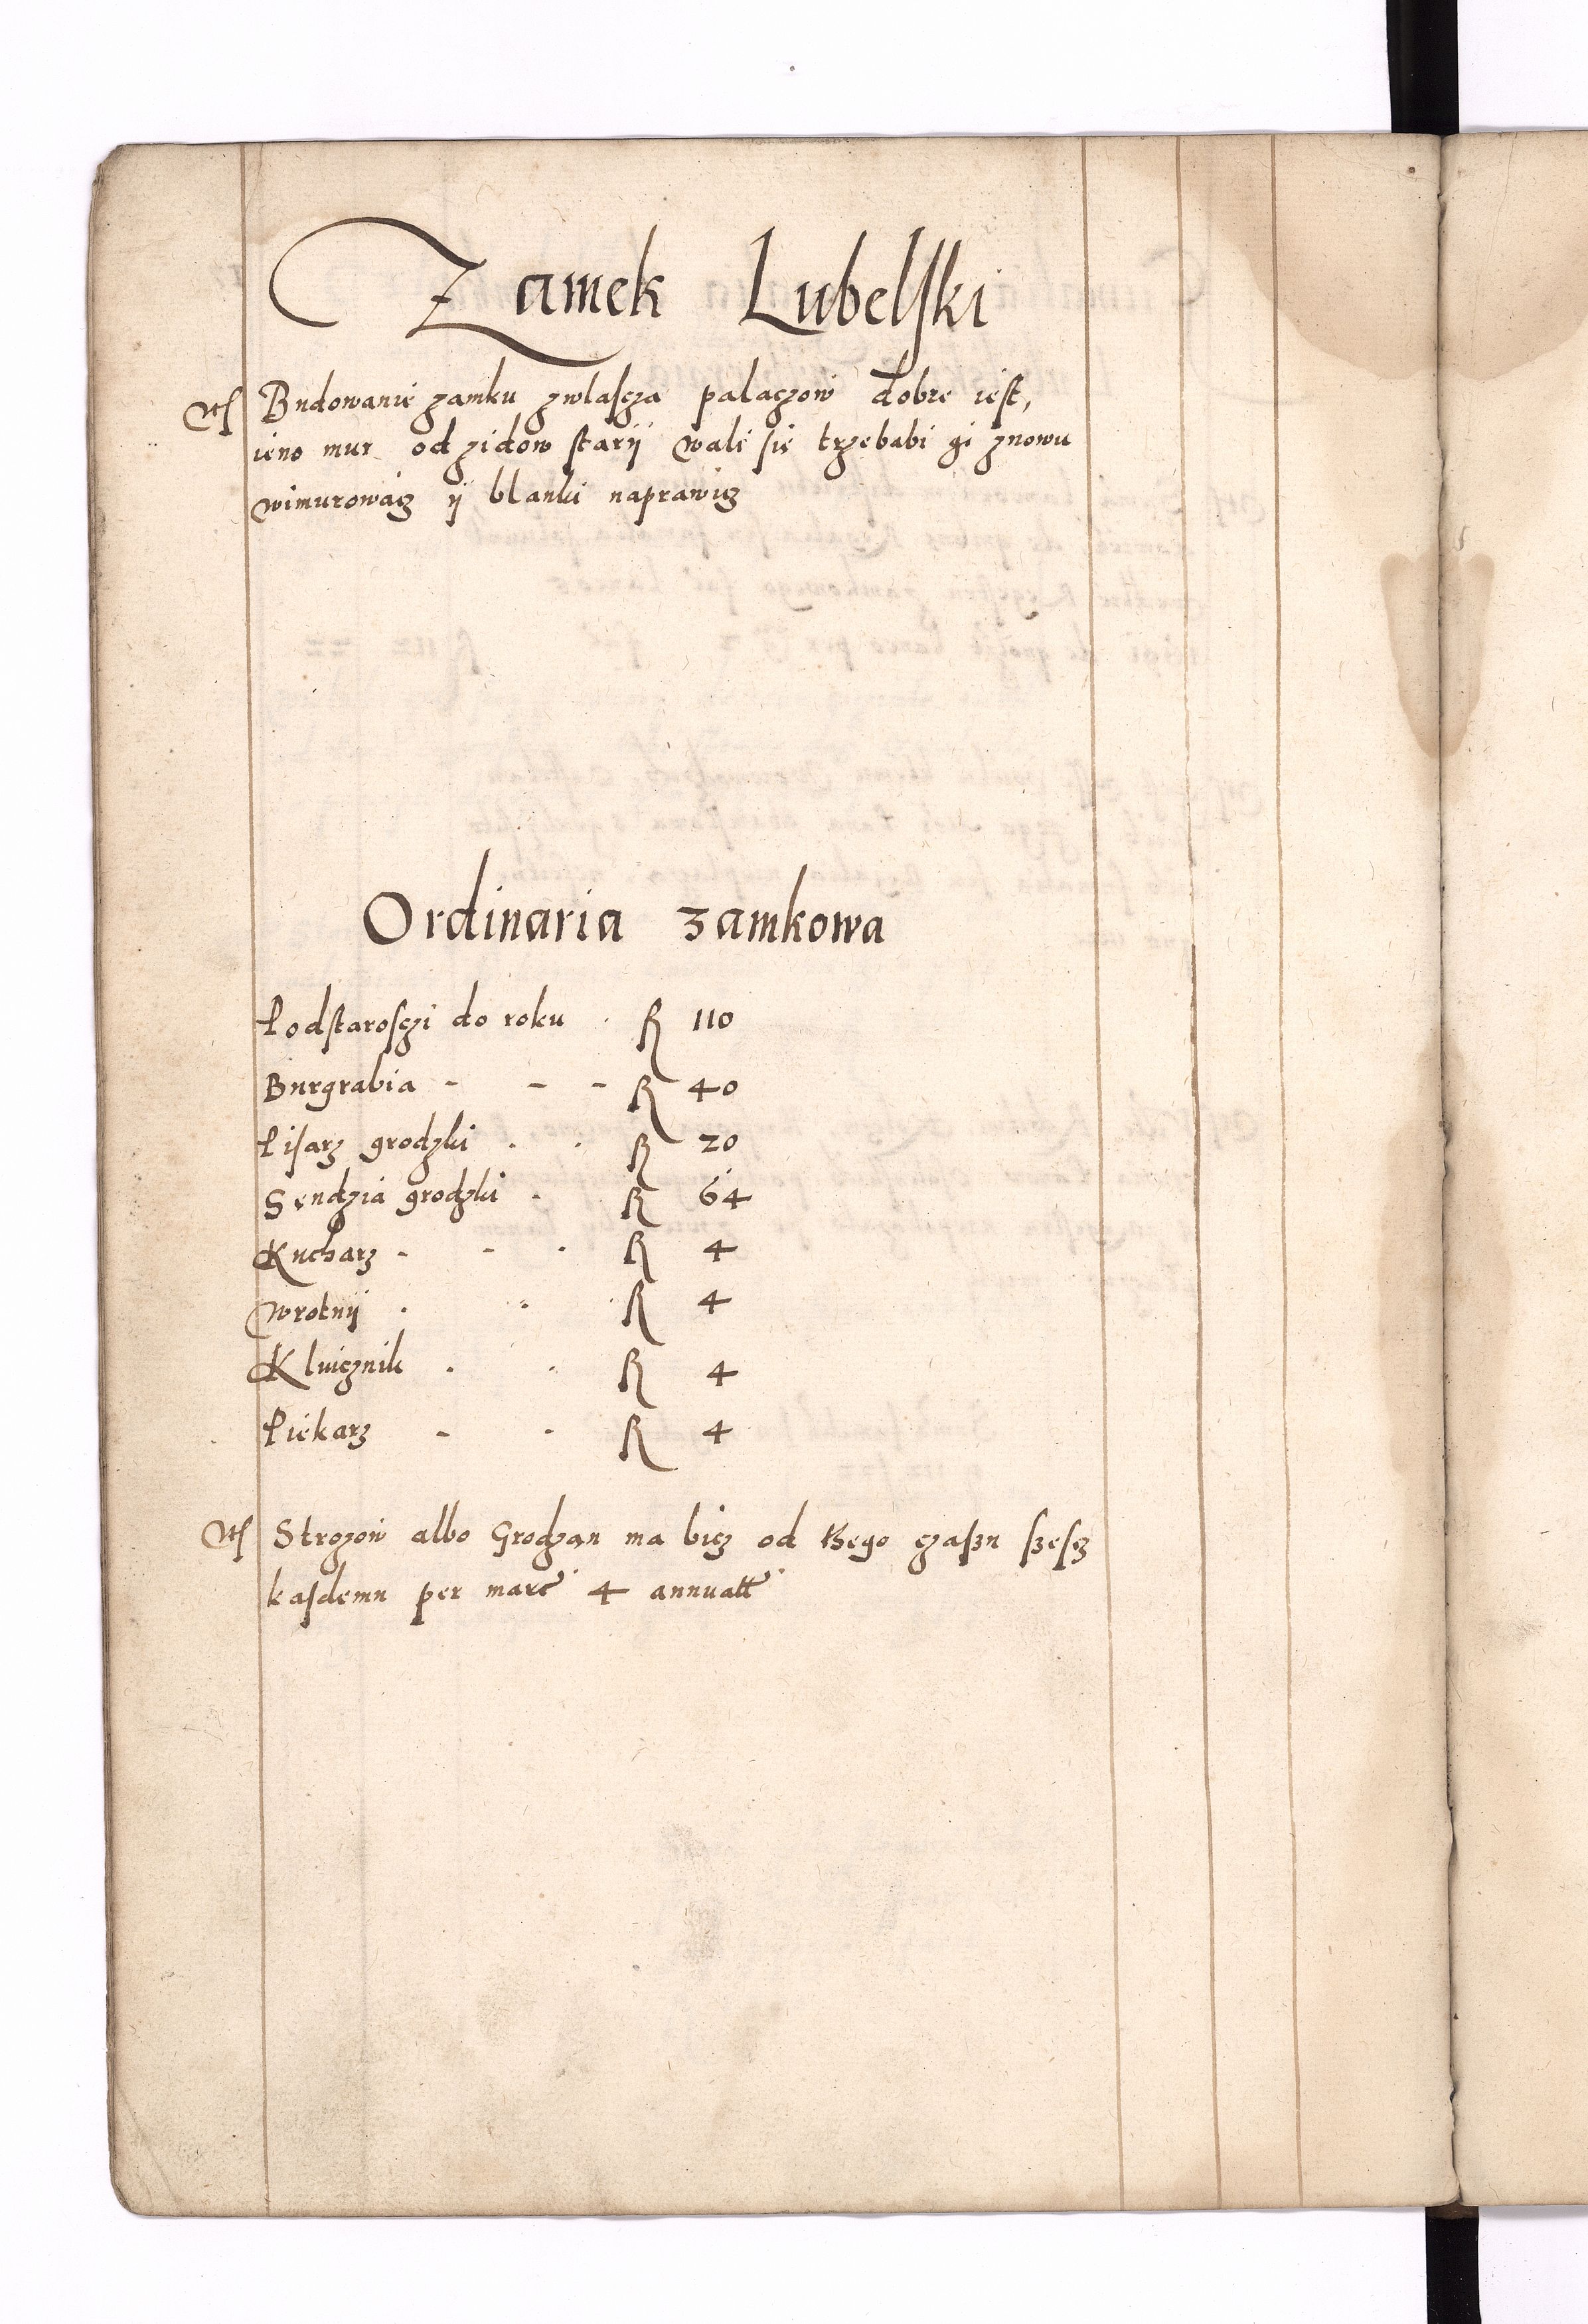 Zamek Lubelski
Budowanie zamku zwlascza palaczow dobre iest,
ieno mur od zidow starij wali sie trzebabi gi znowu
wimurowacz ij blanki naprawicz
Ordinaria zamkowa
Podstarosczi do roku R 110
Burgrabia - - - R 40
Pisarz grodzki . . R 20
Sendzia grodzki - R 64
Kucharz - - . R 4
Wrotnij . . R 4
Kluicznik . . R 4
Piekarz - . R 4
Strozow albo Grodzan ma bicz od tego czaszu szescz
kasdemu per marc 4 annuatt